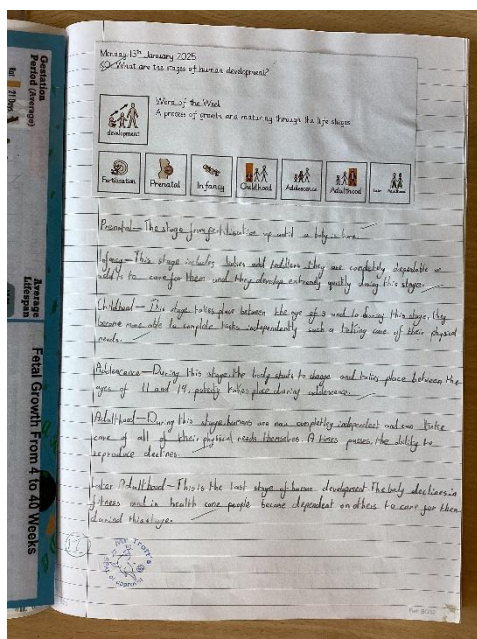 Gestation
Period (Average)
Average
Lifespan
Fetal Growth From 4 to 40 Weeks
Monday 13th January 2025
LO: What are the stages of human development?
Word of the Week
A process of growth and maturing through the life stages
development
Fertilisation
Prenatal
Infancy
Childhood
Adolescence
Adulthood
Later Adulthood
Prenatal – The stage from fertilisation up until a baby is born.
Infancy – This stage includes babies and toddlers. They are completely dependable on
adults to care for them and they develop extremely quickly during this stage.
Childhood – This stage takes place between the age of 3 and 10 during this stage, they
become more able to complete tasks independently such a taking care of their physical
needs.
Adolescence – During this stage, the body starts to change and takes place between the
ages of 11 and 19. puberty takes place during adolescence.
Adulthood – During this stage humans are now completely independent and can take
care of all of their physical needs themselves. A times passes, the ability to
reproduce declines.
Later Adulthood – This is the last stage of human development. The body declines in
fitness and in health care people become dependent on others to care for them
during this stage.